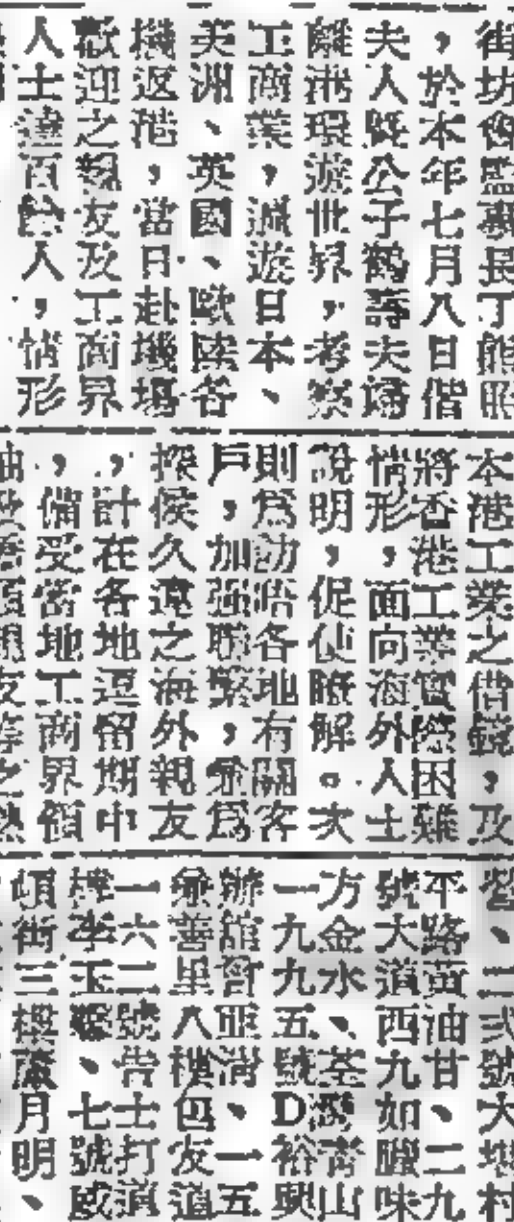 街坊會監事長丁熊照
,於本年七月八日偕
夫人旣公子鶴壽夫婦
離港環遊世界,考察
工商業,漫遊日本、
美洲、英國、歐陸各
機返港,當日赴機場
歡迎之親友及工商界
人士達百餘人,情形
本港工業之借鏡,及
將香港工業實際困難
情形,面向海外人士
說明,促使瞭解。次
則爲訪晤各地有關客
戶,加强聯繫,兼爲
探候久違之海外親友
,計在各地逗留期中
,備受當地工商界領
友等之熱
、二弍號大
平路黃油甘、二九
號大道西九如臘味
方金水、荃灣青山
一九九五號D裕興
辦館曾亞满、一五
兼善里八樓包友道
一六二號告士打道
樓李玉、七號威
頓街三樓嚴月明、